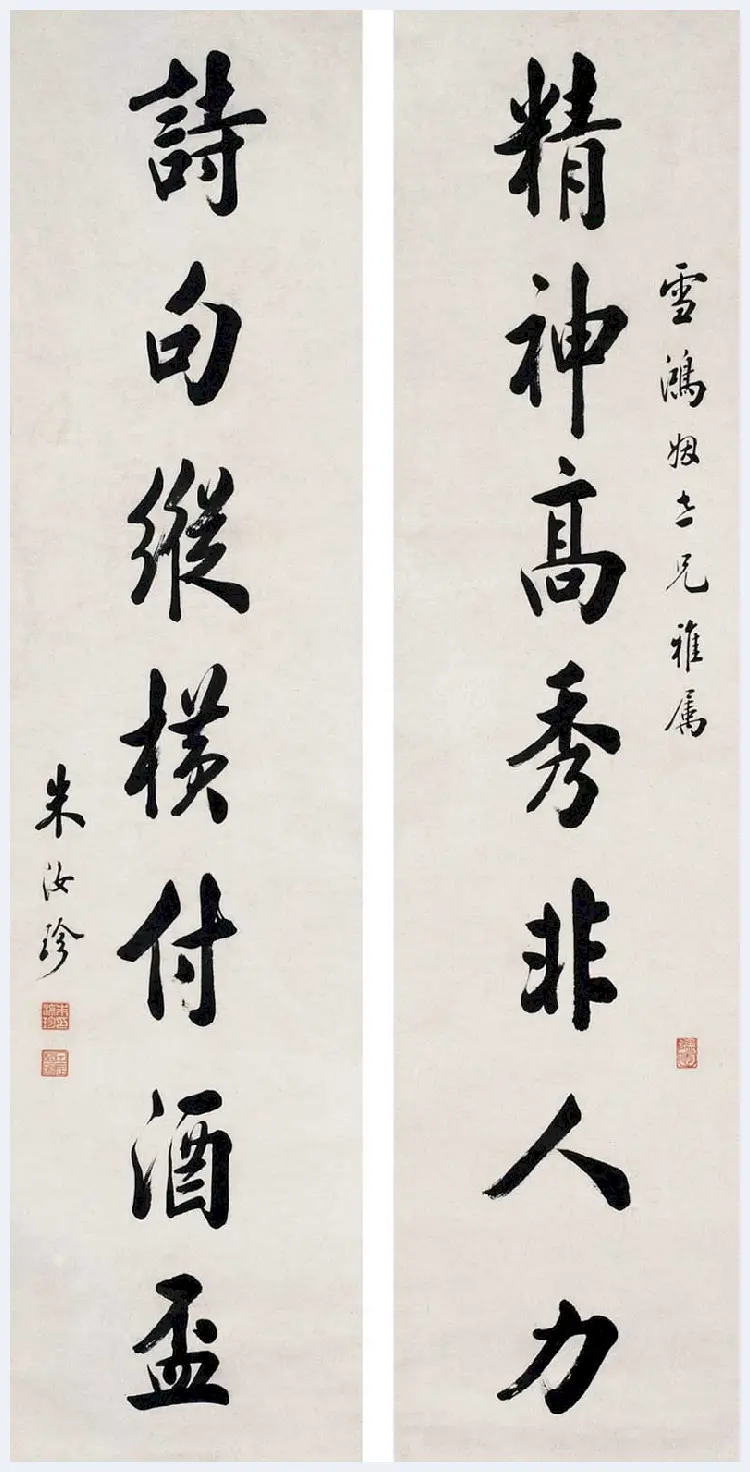 雪鴻姻世兄雅属
精神高秀非人力
詩句縱橫付酒盃
朱汝珍